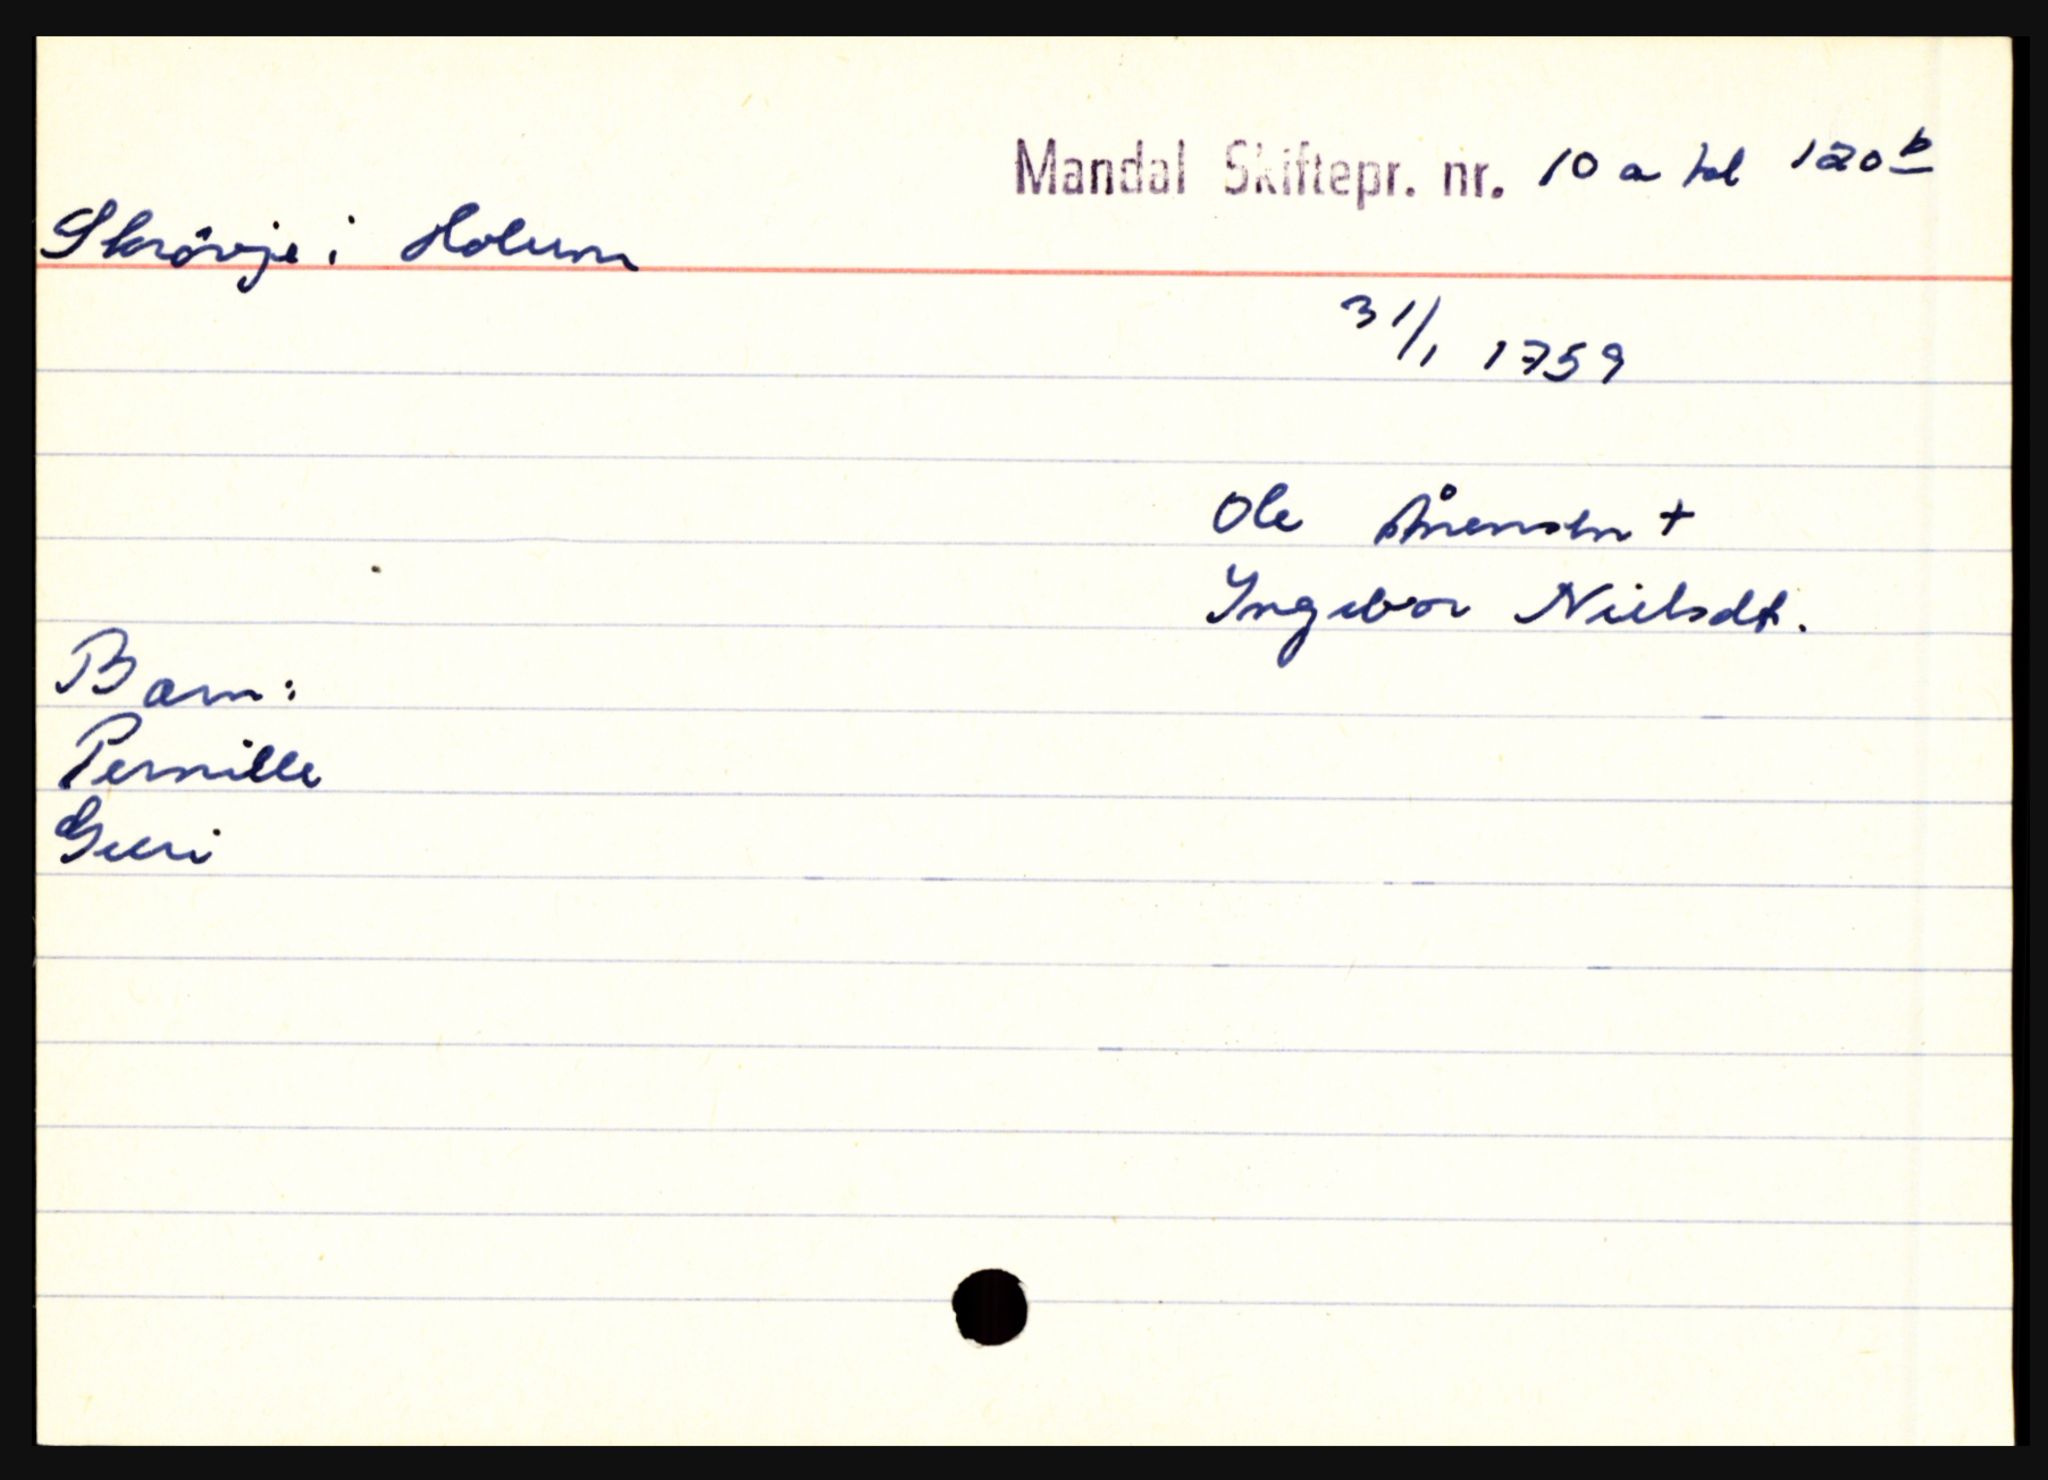 Mandal Skiftepr. nr. 10 a fol 120 b
Skrövje i Holum
31/1 1759
Ole Ånensen +
Ingebor Nielsdt.
Barn:
Pernille
Guri